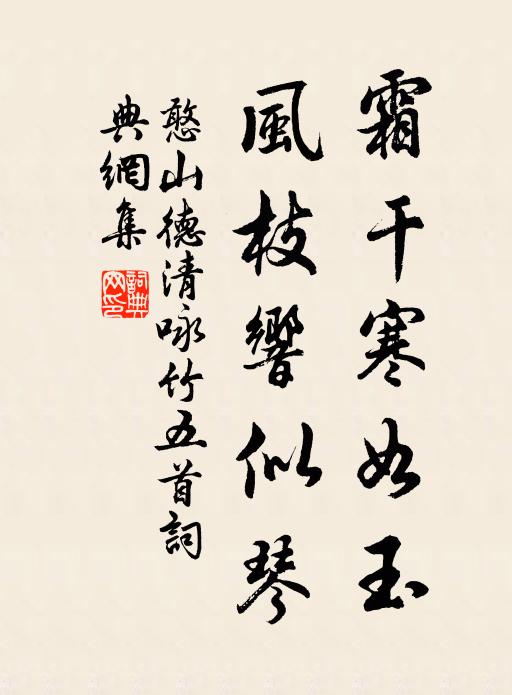 霜干寒如玉
風枝響似琴
憨山德清咏竹五首詞
典網集
詞典網印